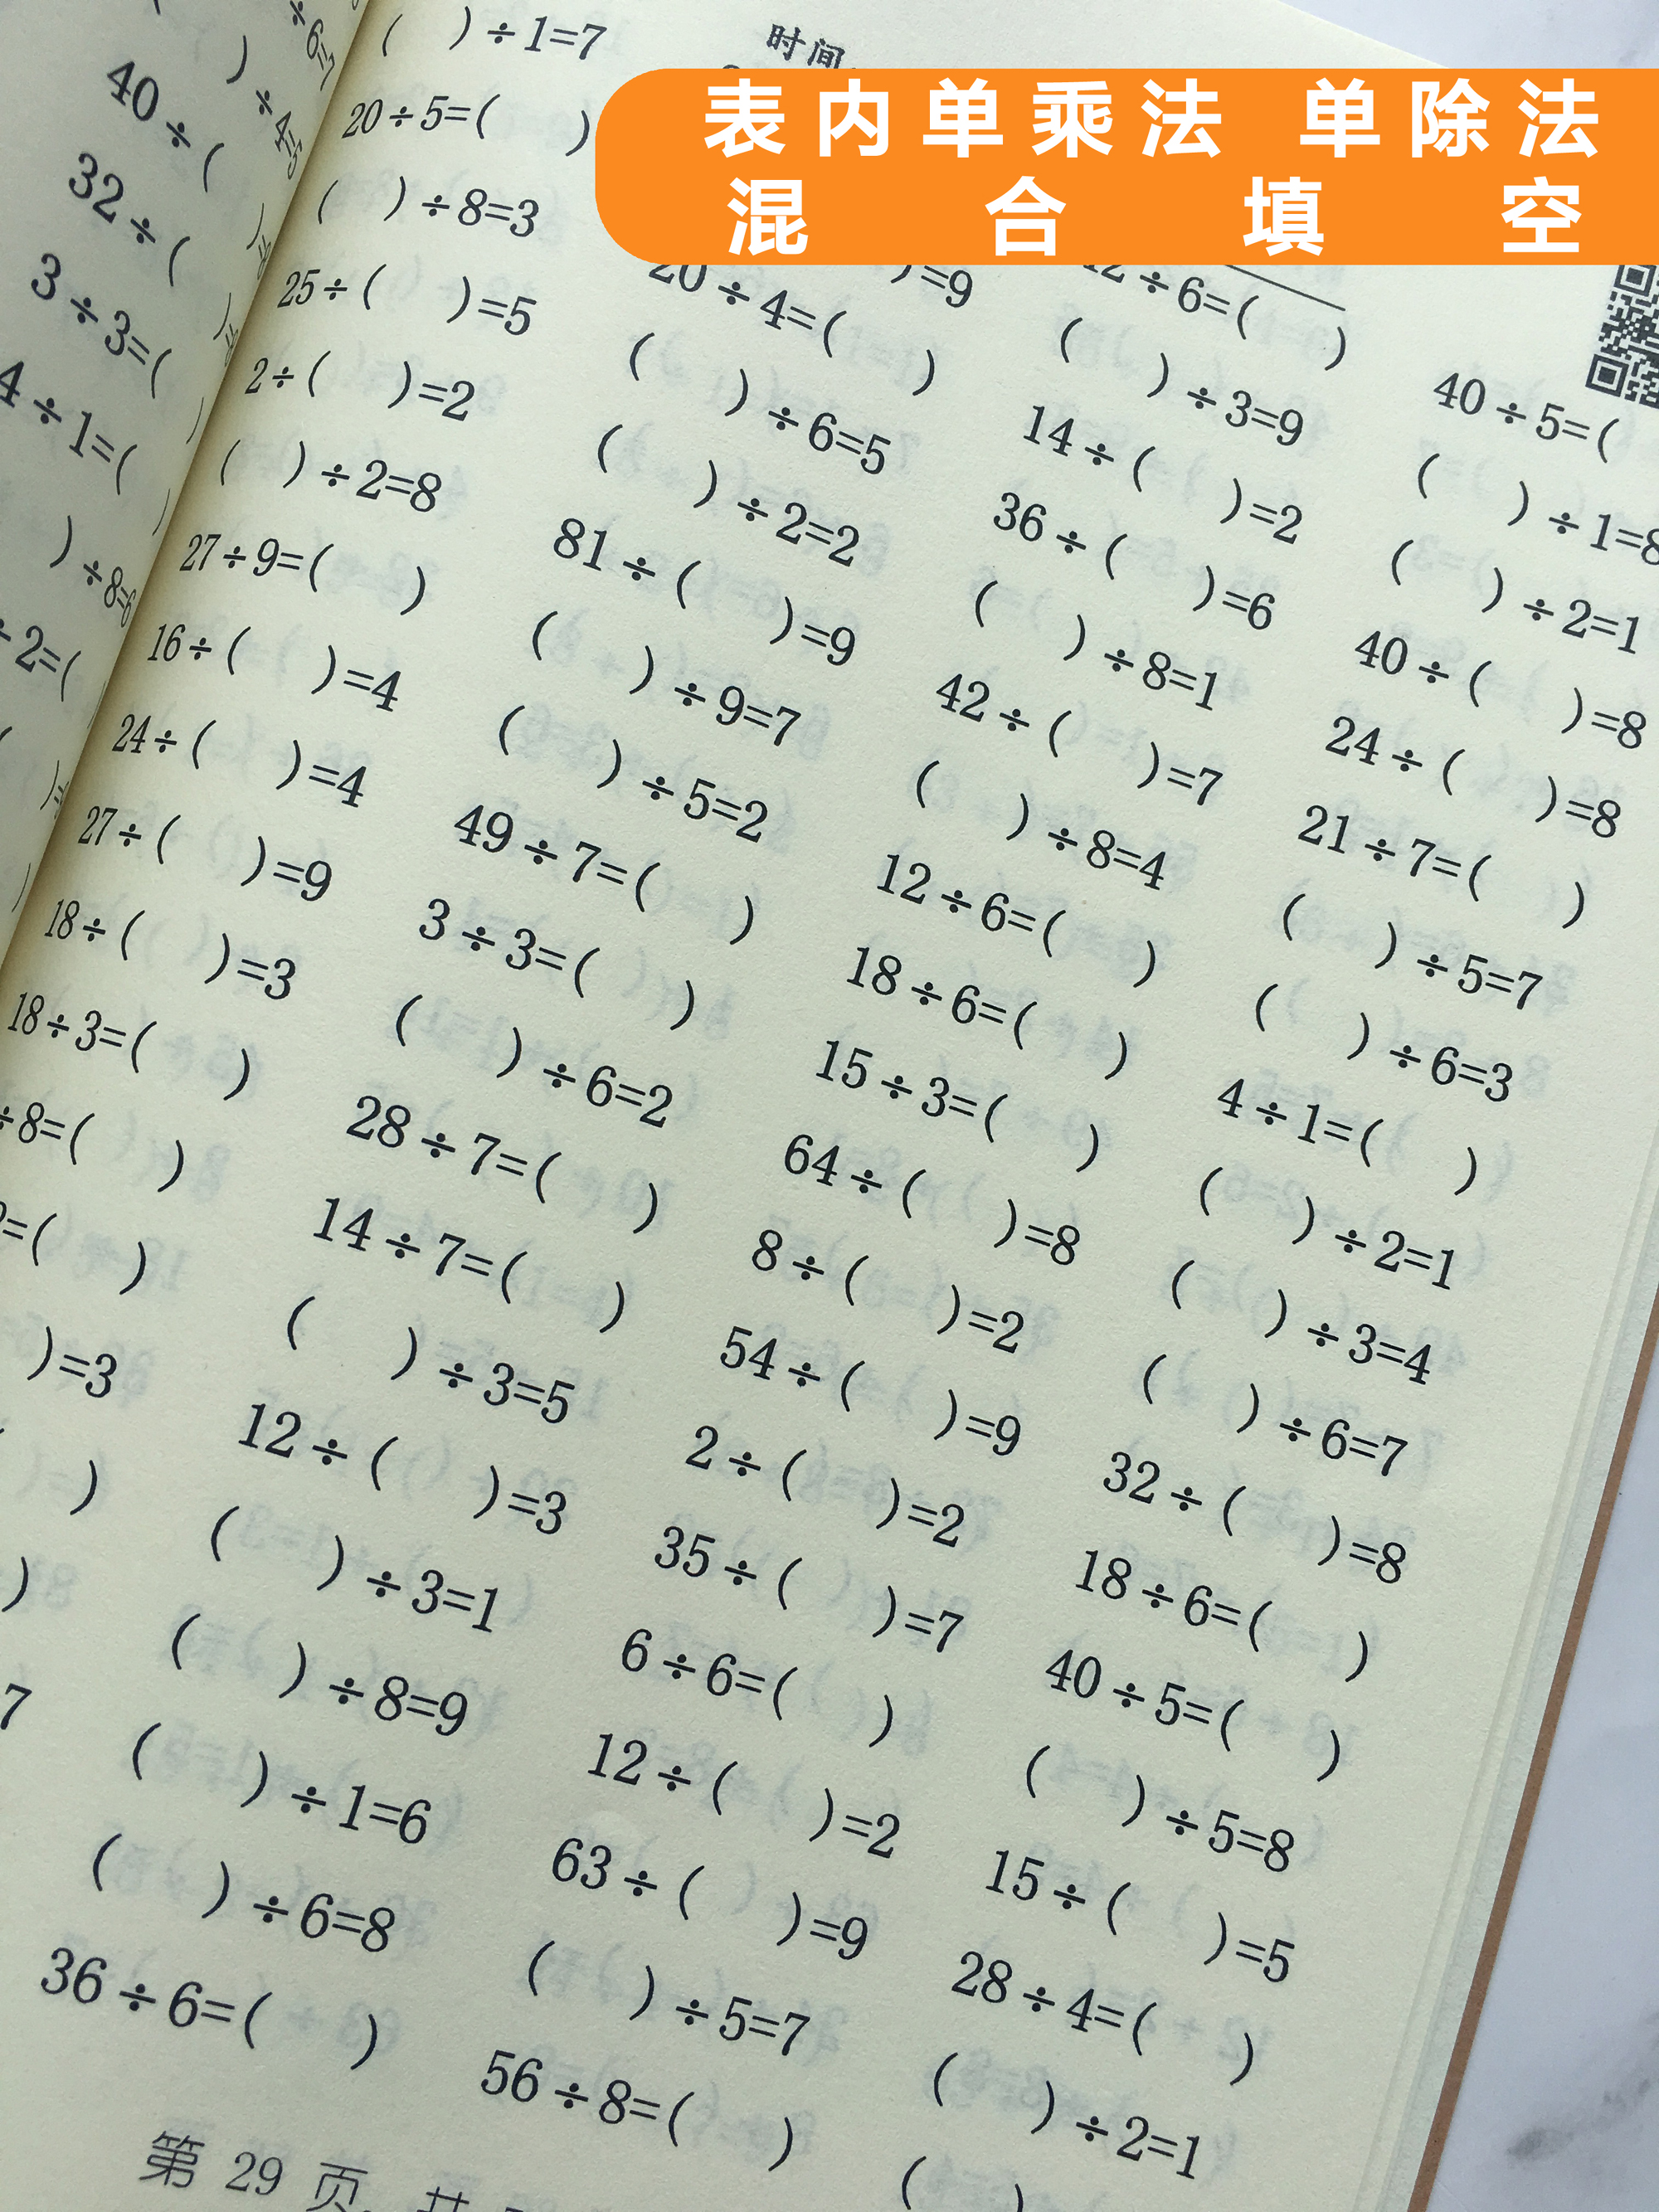 表内单乘法 单除法
混合填空
时间
( )÷1=7
20÷5=( )
( )÷8=3
25÷( )=5
2÷( )=2
( )÷2=8
27÷9=( )
16÷( )=4
24÷( )=4
27÷( )=9
18÷( )=3
18÷3=( )
÷8=( )
=( )
)=3
)
)
7
)=9
20÷4=( )
( )÷6=5
( )÷2=2
81÷( )=9
( )÷9=7
( )÷5=2
49÷7=( )
3÷3=( )
( )÷6=2
28÷7=( )
14÷7=( )
( )÷3=5
12÷( )=3
( )÷3=1
( )÷8=9
( )÷1=6
( )÷6=8
36÷6=( )
12÷6=( )
( )÷3=9
14÷( )=2
36÷( )=6
( )÷8=1
42÷( )=7
( )÷8=4
12÷6=( )
18÷6=( )
15÷3=( )
64÷( )=8
8÷( )=2
54÷( )=9
2÷( )=2
35÷( )=7
6÷6=( )
12÷( )=2
63÷( )=9
( )÷5=7
56÷8=( )
40÷5=(
( )÷1=8
( )÷2=1
40÷( )=8
24÷( )=8
21÷7=( )
( )÷5=7
( )÷6=3
4÷1=( )
( )÷2=1
( )÷3=4
( )÷6=7
32÷( )=8
18÷6=( )
40÷5=( )
( )÷5=8
15÷( )=5
28÷4=( )
( )÷2=1
( )
第 29 页 共
40÷(
32÷(
3÷3=(
4÷1=(
)÷8=6
÷2=(